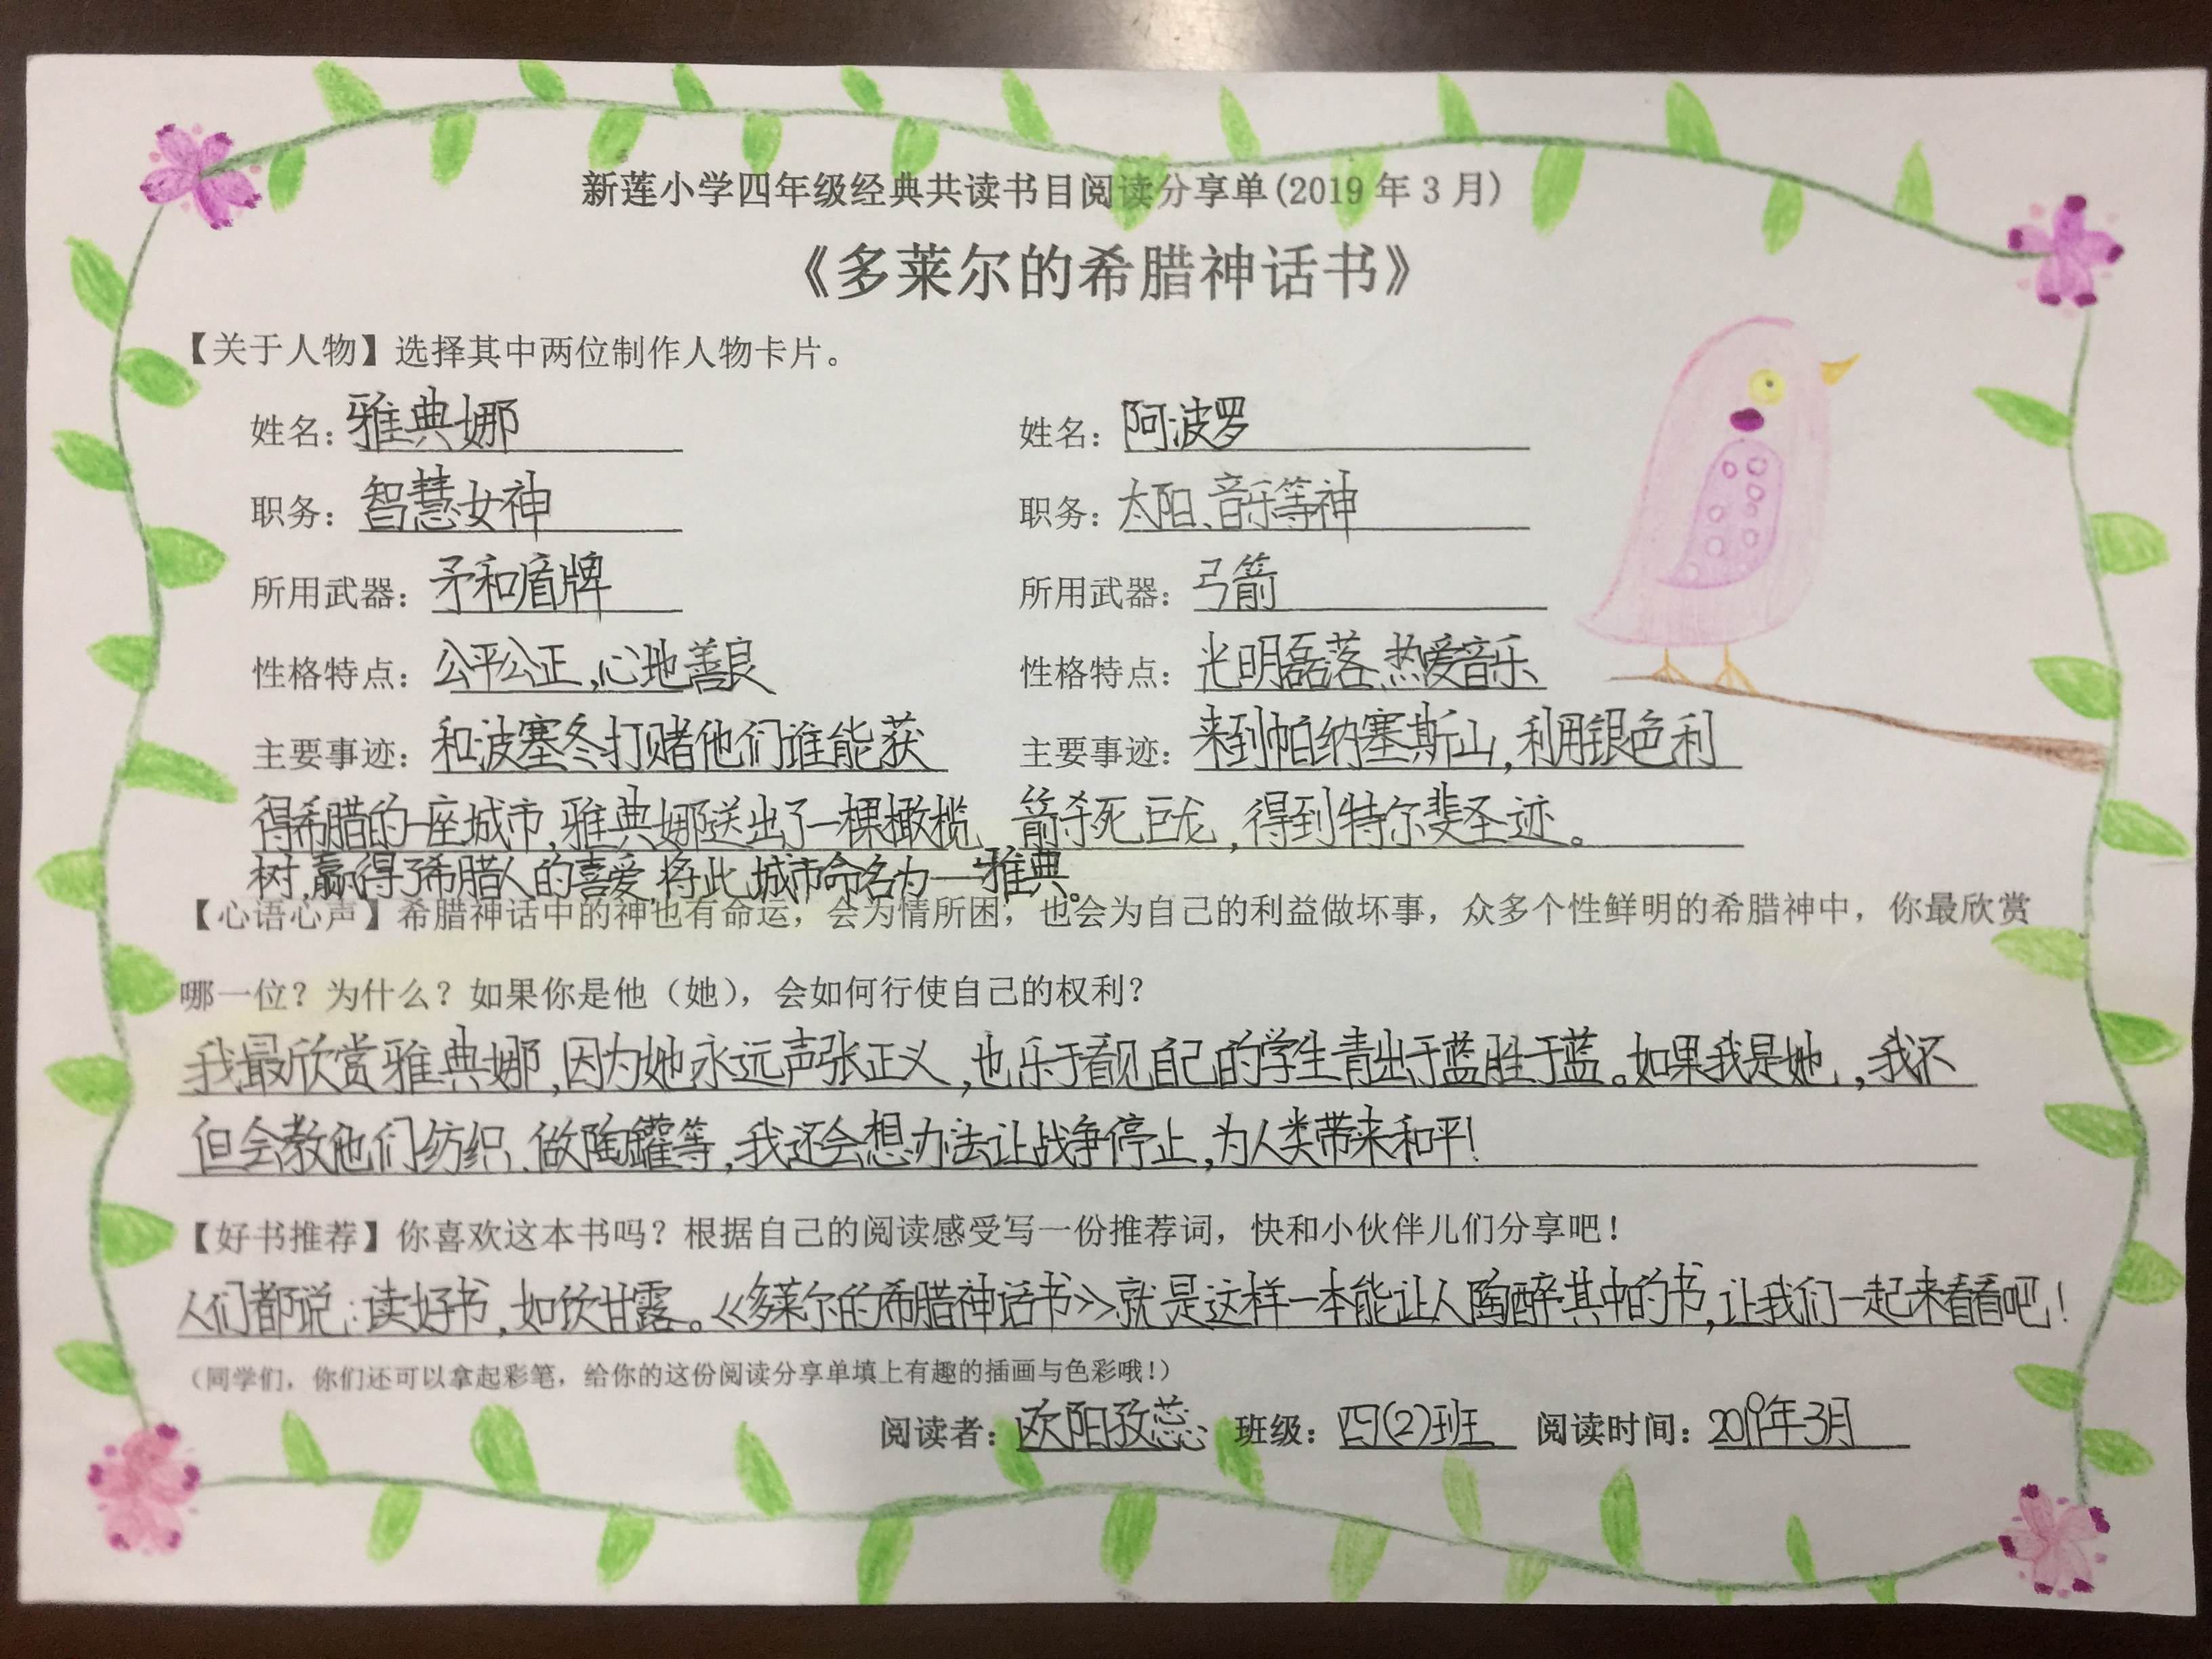 新莲小学四年级经典共读书目阅读分享单(2019年3月)
《多莱尔的希腊神话书》
【关于人物】选择其中两位制作人物卡片。
姓名：雅典娜 姓名：阿波罗
职务：智慧女神 职务：太阳、音乐等神
所用武器：矛和盾牌 所用武器：弓箭
性格特点：公平公正,心地善良 性格特点：光明磊落、热爱音乐
主要事迹：和波塞冬打赌他们谁能获 主要事迹：来到帕纳塞斯山,利用银色利
得希腊的一座城市,雅典娜送出了一棵橄榄 箭杀死巨龙,得到特尔斐圣迹。
树,赢得了希腊人的喜爱,将此城市命名为—雅典。
【心语心声】希腊神话中的神也有命运，会为情所困，也会为自己的利益做坏事，众多个性鲜明的希腊神中，你最欣赏
哪一位？为什么？如果你是他（她），会如何行使自己的权利？
我最欣赏雅典娜,因为她永远声张正义,也乐于看见自己的学生青出于蓝胜于蓝。如果我是她,我不
但会教他们纺织、做陶罐等,我还会想办法让战争停止,为人类带来和平!
【好书推荐】你喜欢这本书吗？根据自己的阅读感受写一份推荐词，快和小伙伴儿们分享吧！
人们都说:读好书,如饮甘露。《多莱尔的希腊神话书》就是这样一本能让人陶醉其中的书,让我们一起来看看吧!
（同学们，你们还可以拿起彩笔，给你的这份阅读分享单填上有趣的插画与色彩哦！）
阅读者：欧阳孜蕊 班级：四(2)班 阅读时间：2019年3月